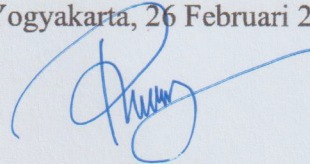 Yogyakarta, 26 Februari 2